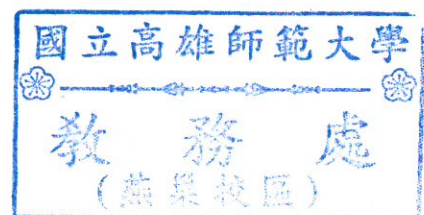 國立高雄師範大學
教務處
(燕巢校區)